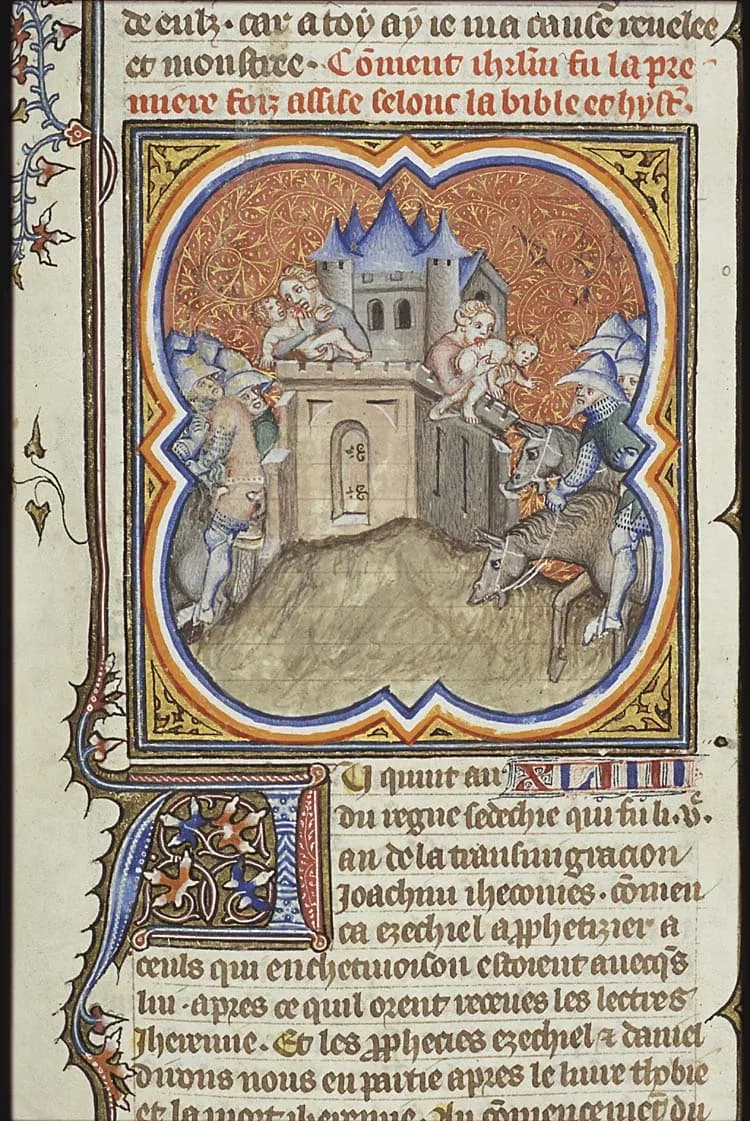 de eulz · car a toy ay ie ma cause reuelee
et monstree · Cōment ihrlm̄ fu la pre
miere foiz assise selonc la bible et hyst̄.
U quint an XLIIII
du regne sedechie qui fu li · v͛ ·
an de la transmigracion
Joachim iheconies · cōmen
ca ezechiel a ꝓphetizier a
ceuls qui en chetiuoison estoient auecq̄s
lui · apres ce quil orent receues les lectres
Iheremie · Et les ꝓphecies ezechiel ⁊ daniel
dirons nous en partie apres le liure thobie
et la mort iheremie · Au cōmencemēt du